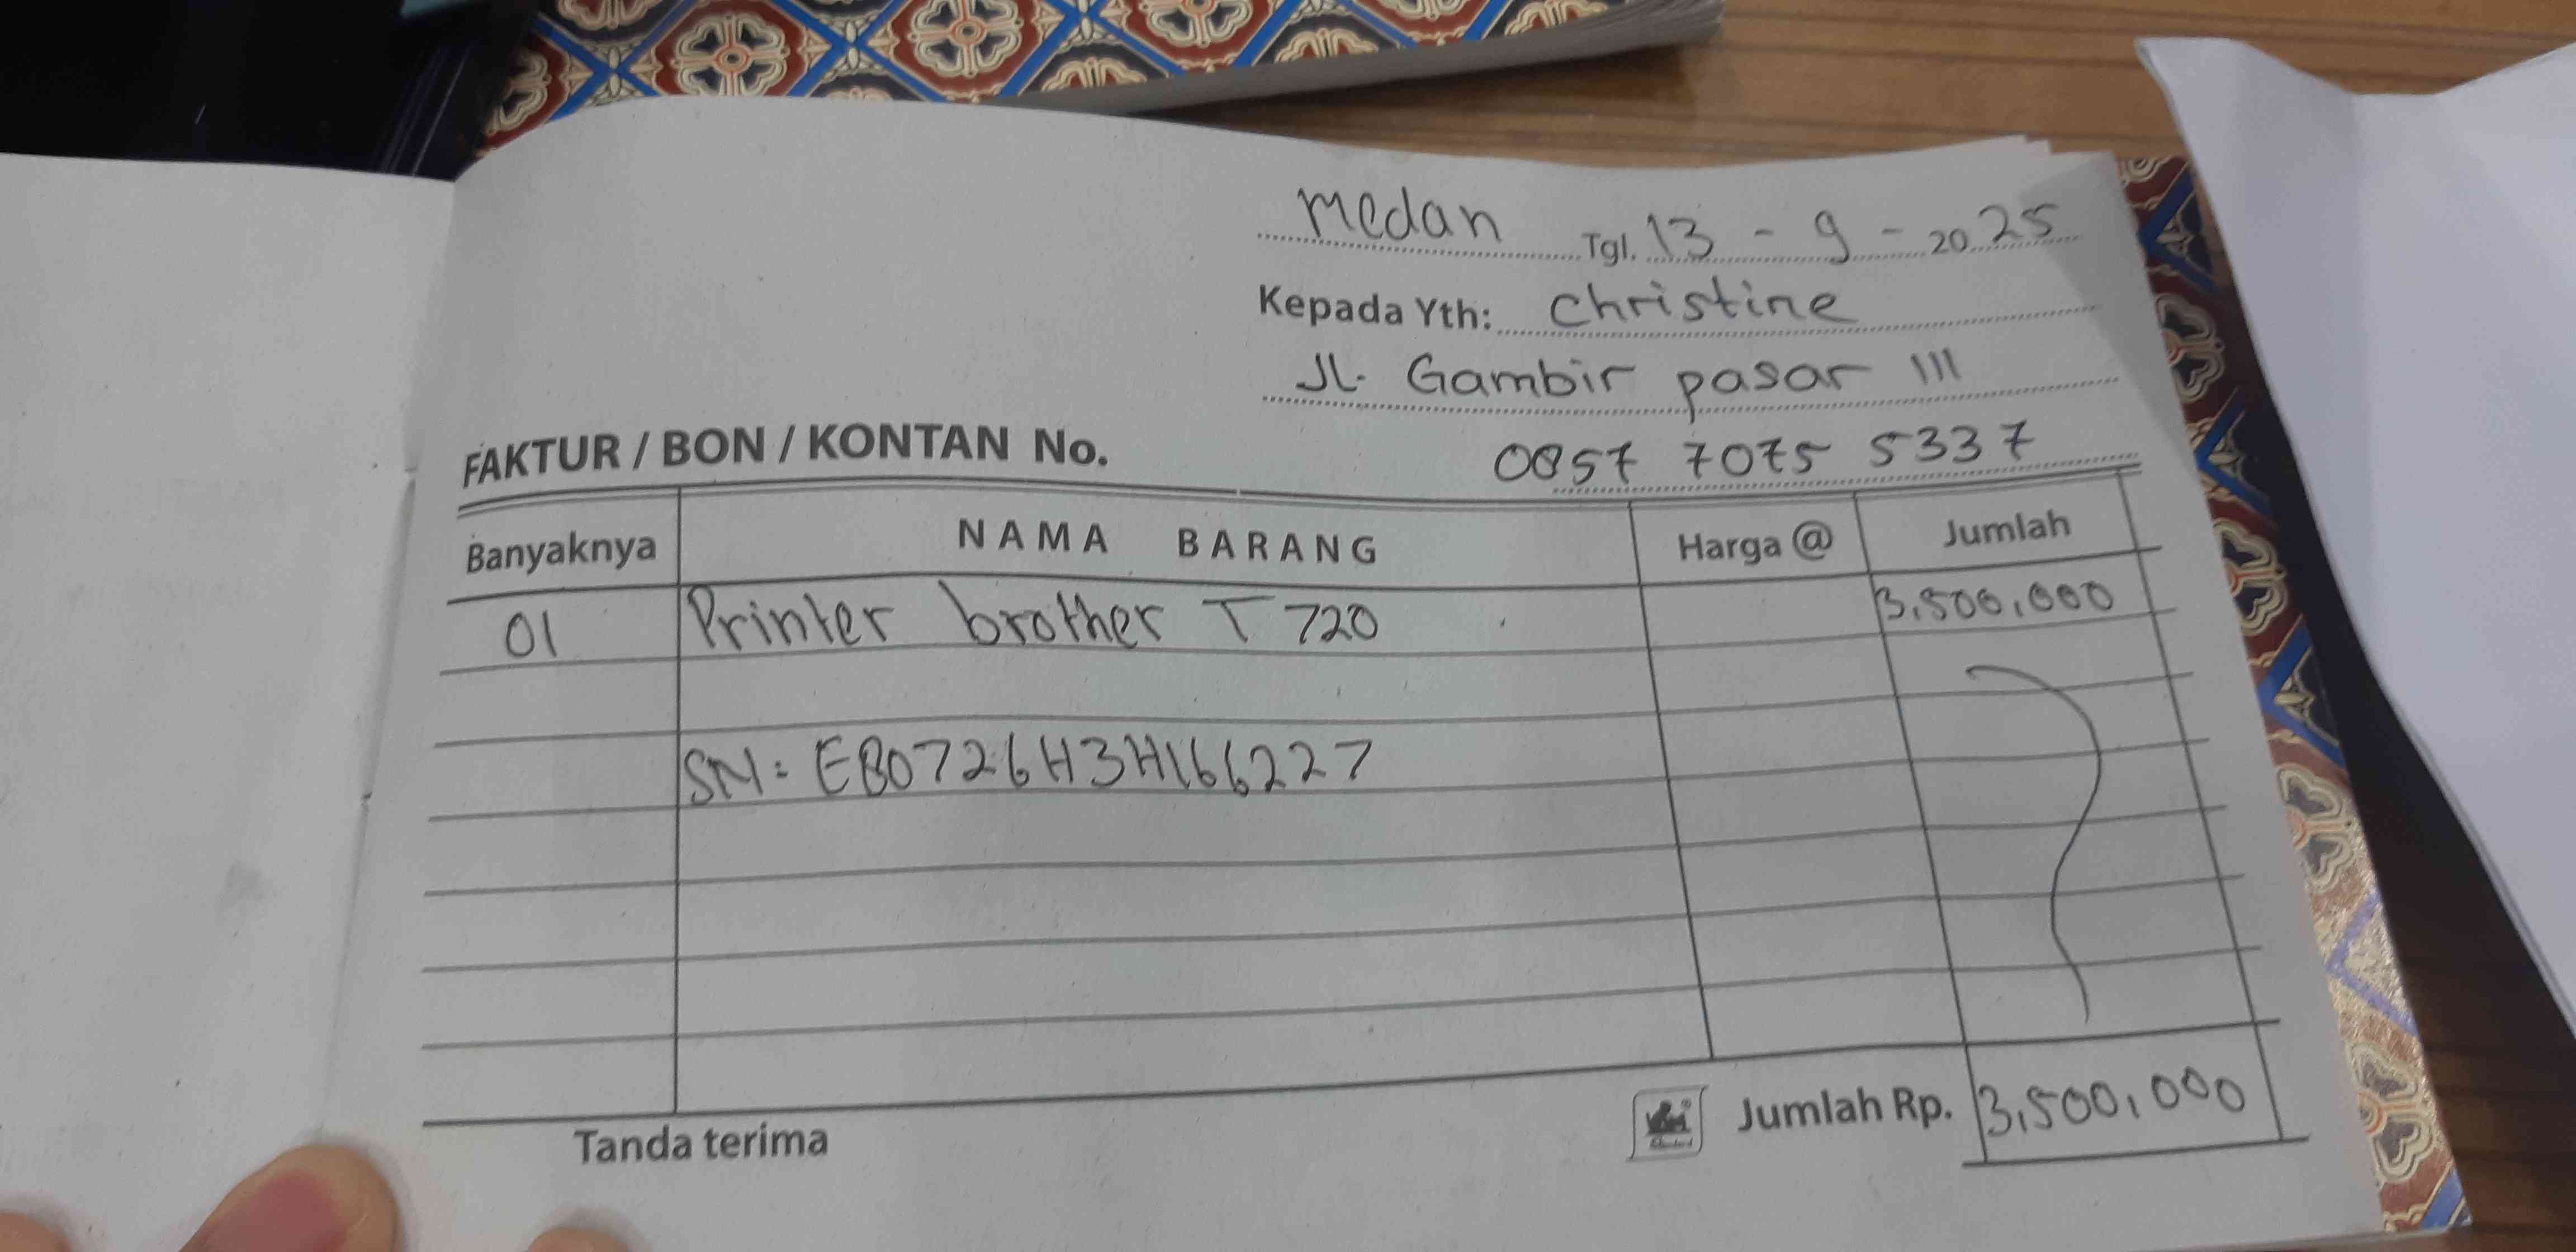 Medan Tgl. 13 - 9 - 2025
Kepada Yth: Christine
Jl. Gambir pasar III
0857 7075 5337
FAKTUR / BON / KONTAN No.
Banyaknya NAMA BARANG Harga @ Jumlah
01 Printer brother T 720 3,500,000
SN: EB0726H3H166227
Jumlah Rp. 3,500,000
Tanda terima